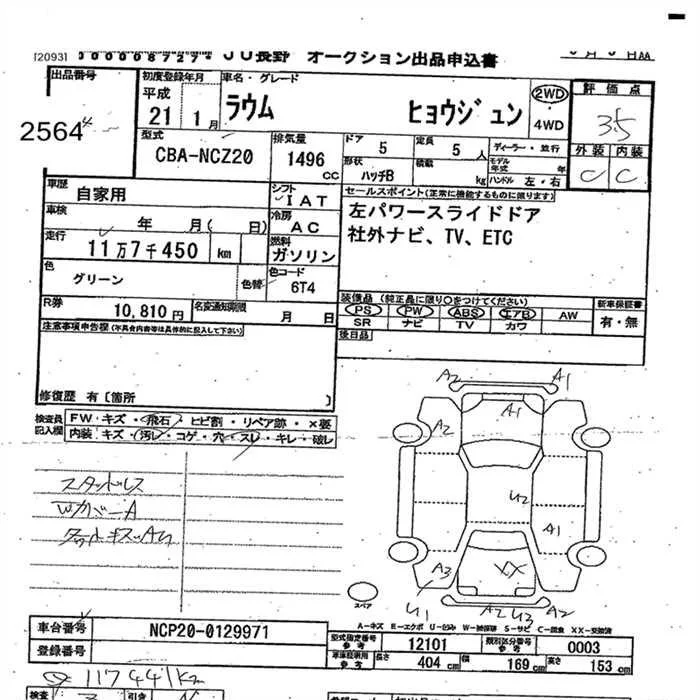 [2093] 0000008727* JU長野 オークション出品申込書
出品番号 初度登録年月 車名・グレード 評価点
2564 平成 21 1月 ラウム ヒョウジュン 2WD ・ 4WD 3.5
型式 排気量 ドア 定員 ディーラー・並行 外装 内装
CBA-NCZ20 1496 CC 5 5人 モデル年式 年 C C
形状 ハッチB 積載 kg ハンドル 左・右
車歴 自家用 シフト IAT セールスポイント(正常に機能するものに限ります)
車検 年 月( 日) 冷房 AC 左パワースライドドア
走行 11万7千450 km 燃料 ガソリン 社外ナビ、TV、ETC
色 グリーン 色替 色コード 6T4
R券 10,810円 名変通知期限 月 日 装備品(純正品に限り○をつけてください) 新車保証書
PS PW ABS エアB AW 有・無
SR ナビ TV カワ
注意事項申告欄(不具合内容等は具体的に記入して下さい) 後日品
修復歴 有〔箇所 〕
検査員記入欄 FW・キズ・飛石・ヒビ割・リペア跡・×要
内装・キズ・汚レ・コゲ・穴・スレ・キレ・破レ
A2 A1
A1
A2
スタッドレス
U2
WカバーA
A1
A3 XX
U1 A2 U3 A2
スペア
A-キズ E-エクボ U-凹ミ W-補修跡 S-サビ C-腐食 XX-交換済
車台番号 NCP20-0129971 型式指定番号 参考 12101 類別区分番号 参考 0003
登録番号 車体証明用 参考 長さ 404 cm 幅 169 cm 高さ 153 cm
117441km
検査